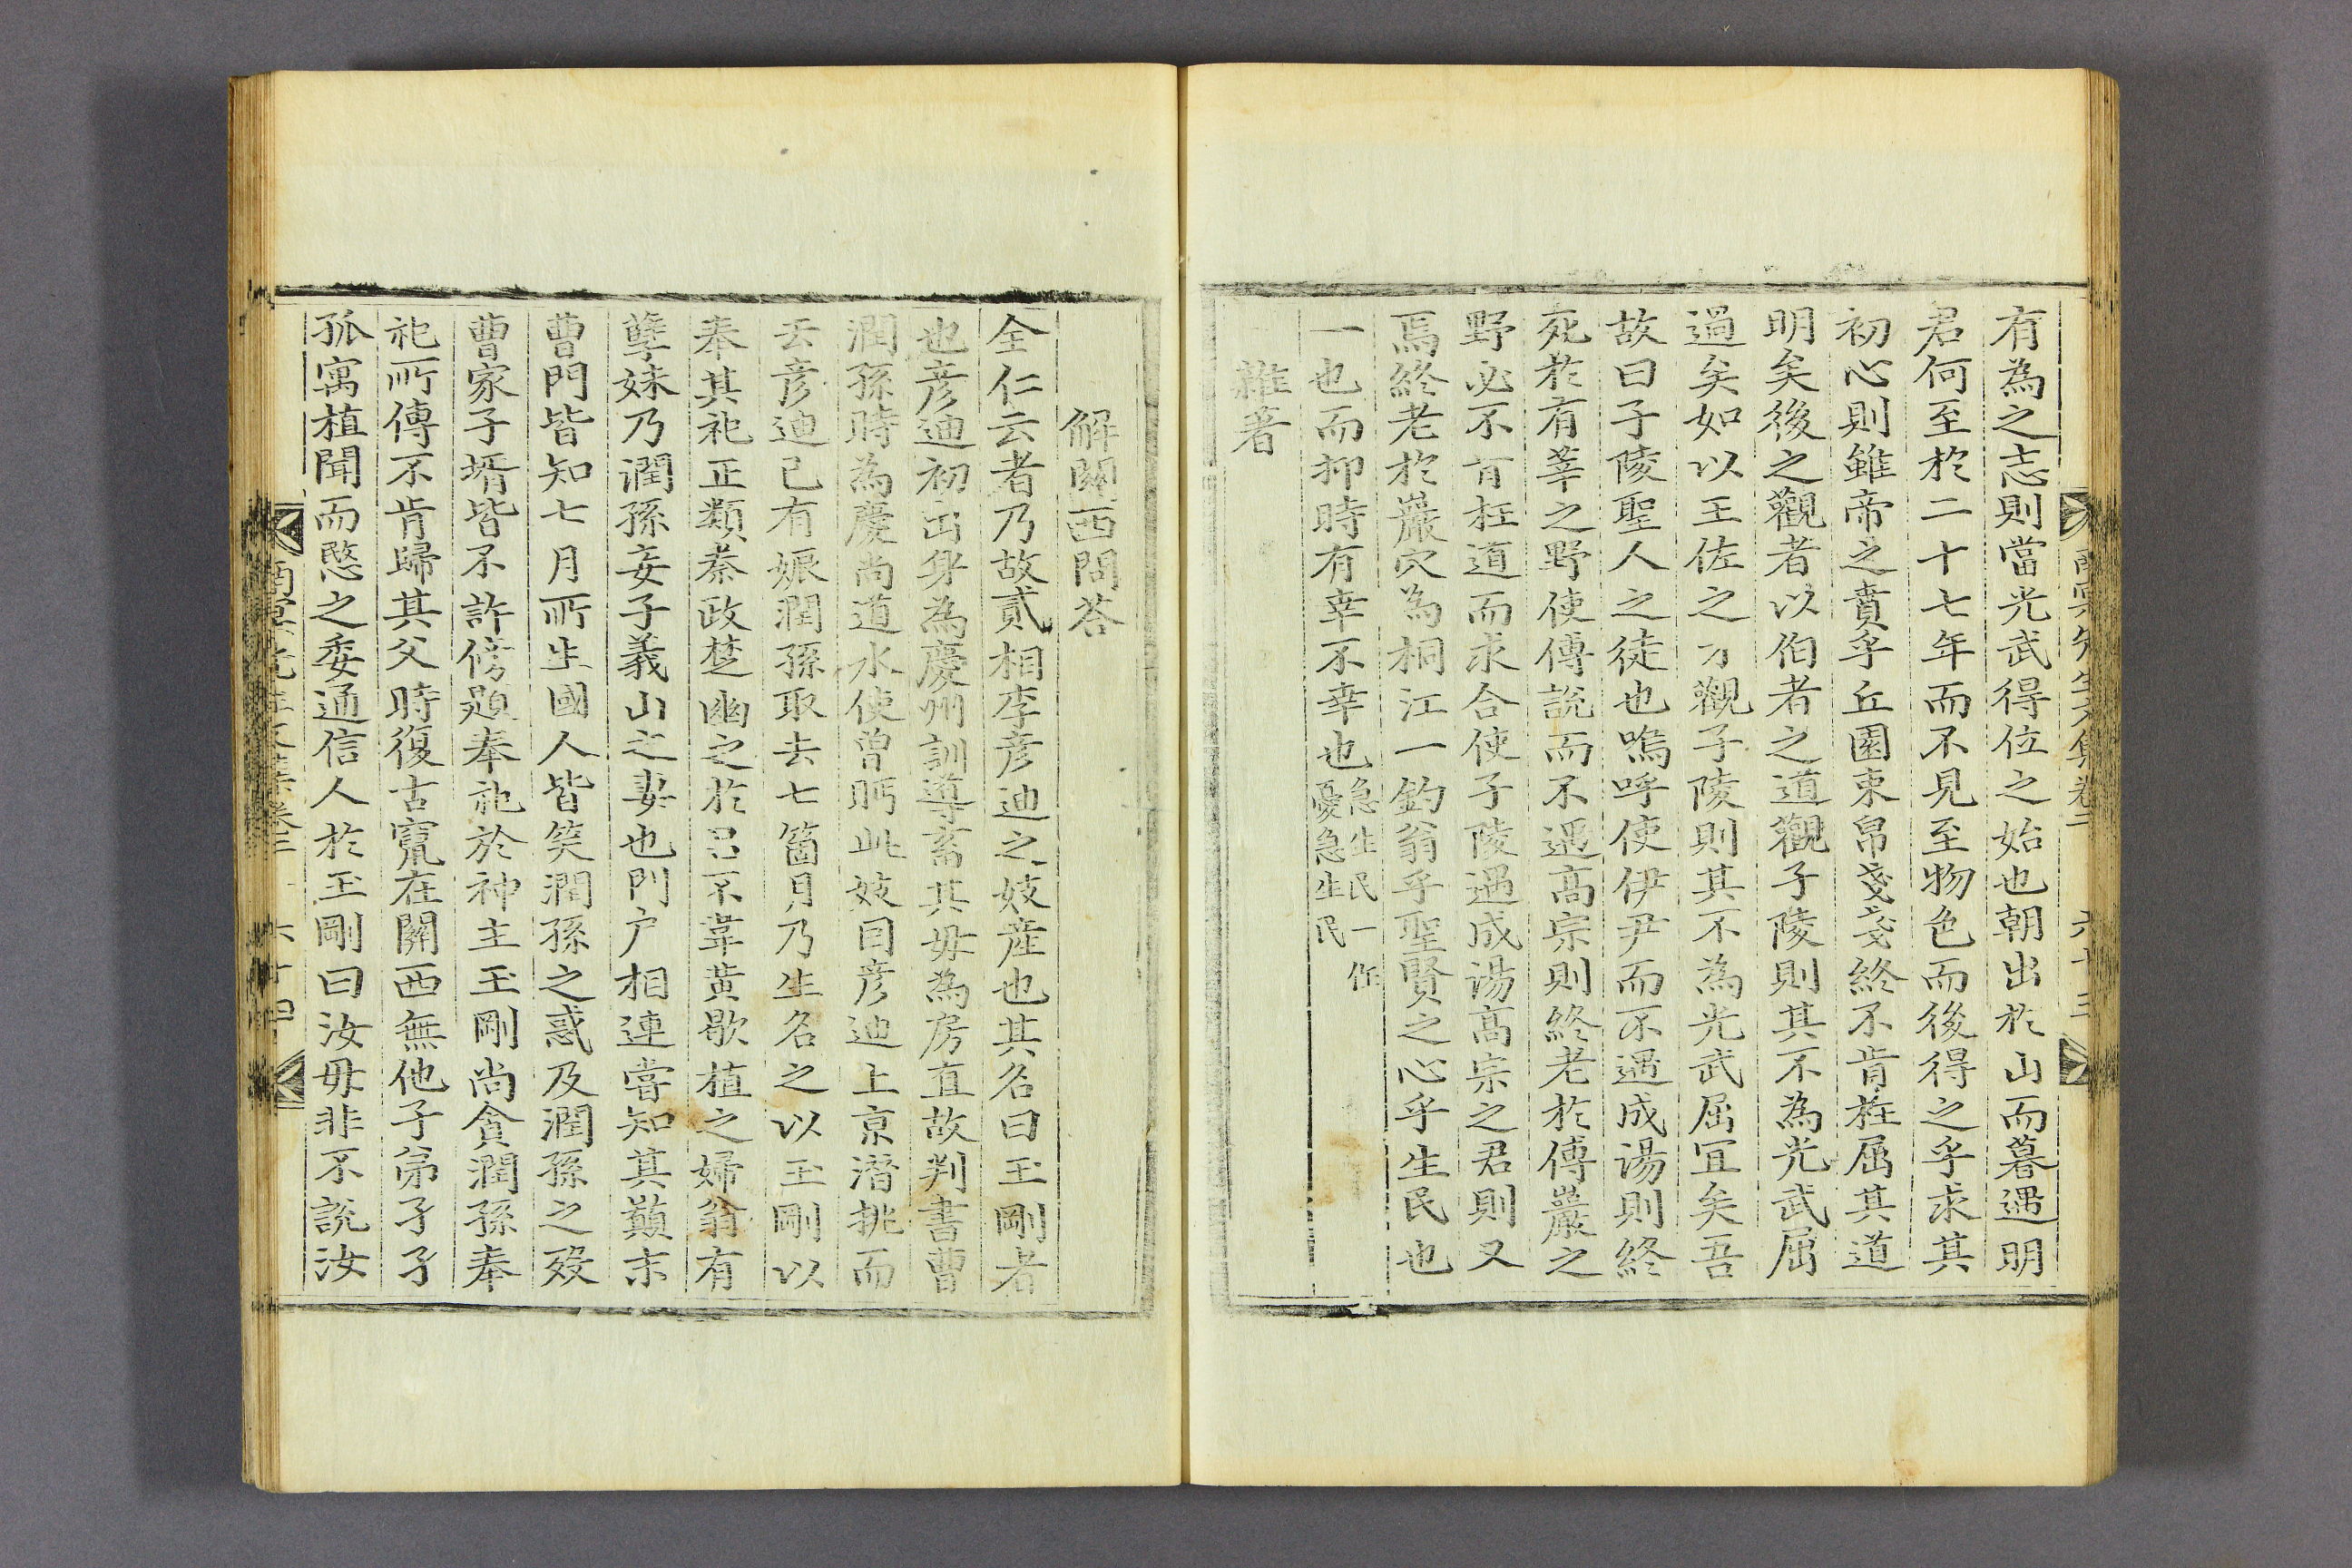 有為之志則當光武得位之始也朝出於山而暮遇明
君何至於二十七年而不見至物色而後得之乎求其
初心則雖帝之賁乎丘園束帛戔戔終不肯枉屈其道
明矣後之觀者以伯者之道觀子陵則其不為光武屈
過矣如以王佐之才觀子陵則其不為光武屈宜矣吾
故曰子陵聖人之徒也嗚呼使伊尹而不遇成湯則終
死於有莘之野使傅說而不遇高宗則終老於傅巖之
野必不肯枉道而求合使子陵遇成湯高宗之君則又
焉終老於巖穴為桐江一釣翁乎聖賢之心乎生民也
一也而抑時有幸不幸也急生民一作憂急生民
雜著
解關西問答
全仁云者乃故貳相李彦迪之妓産也其名曰玉剛者
也彦迪初出身為慶州訓導畜其母為房直故判書曹
潤孫時為慶尚道水使曾眄此妓目彦迪上京潛挑而
去彦迪已有娠潤孫取去七箇月乃生名之以玉剛以
奉其祀正類秦政楚幽之於呂不韋黃歇植之婦翁有
孽妹乃潤孫妾子義山之妻也門户相連嘗知其顚末
曹門皆知七月所生國人皆笑潤孫之惑及潤孫之歿
曹家子壻皆不許傍題奉祀於神主玉剛尚貪潤孫奉
祀所傳不肯歸其父時復古竄在關西無他子弟孑孑
孤寓植聞而愍之委通信人於玉剛曰汝母非不說汝
南冥先生文集卷二 六十四